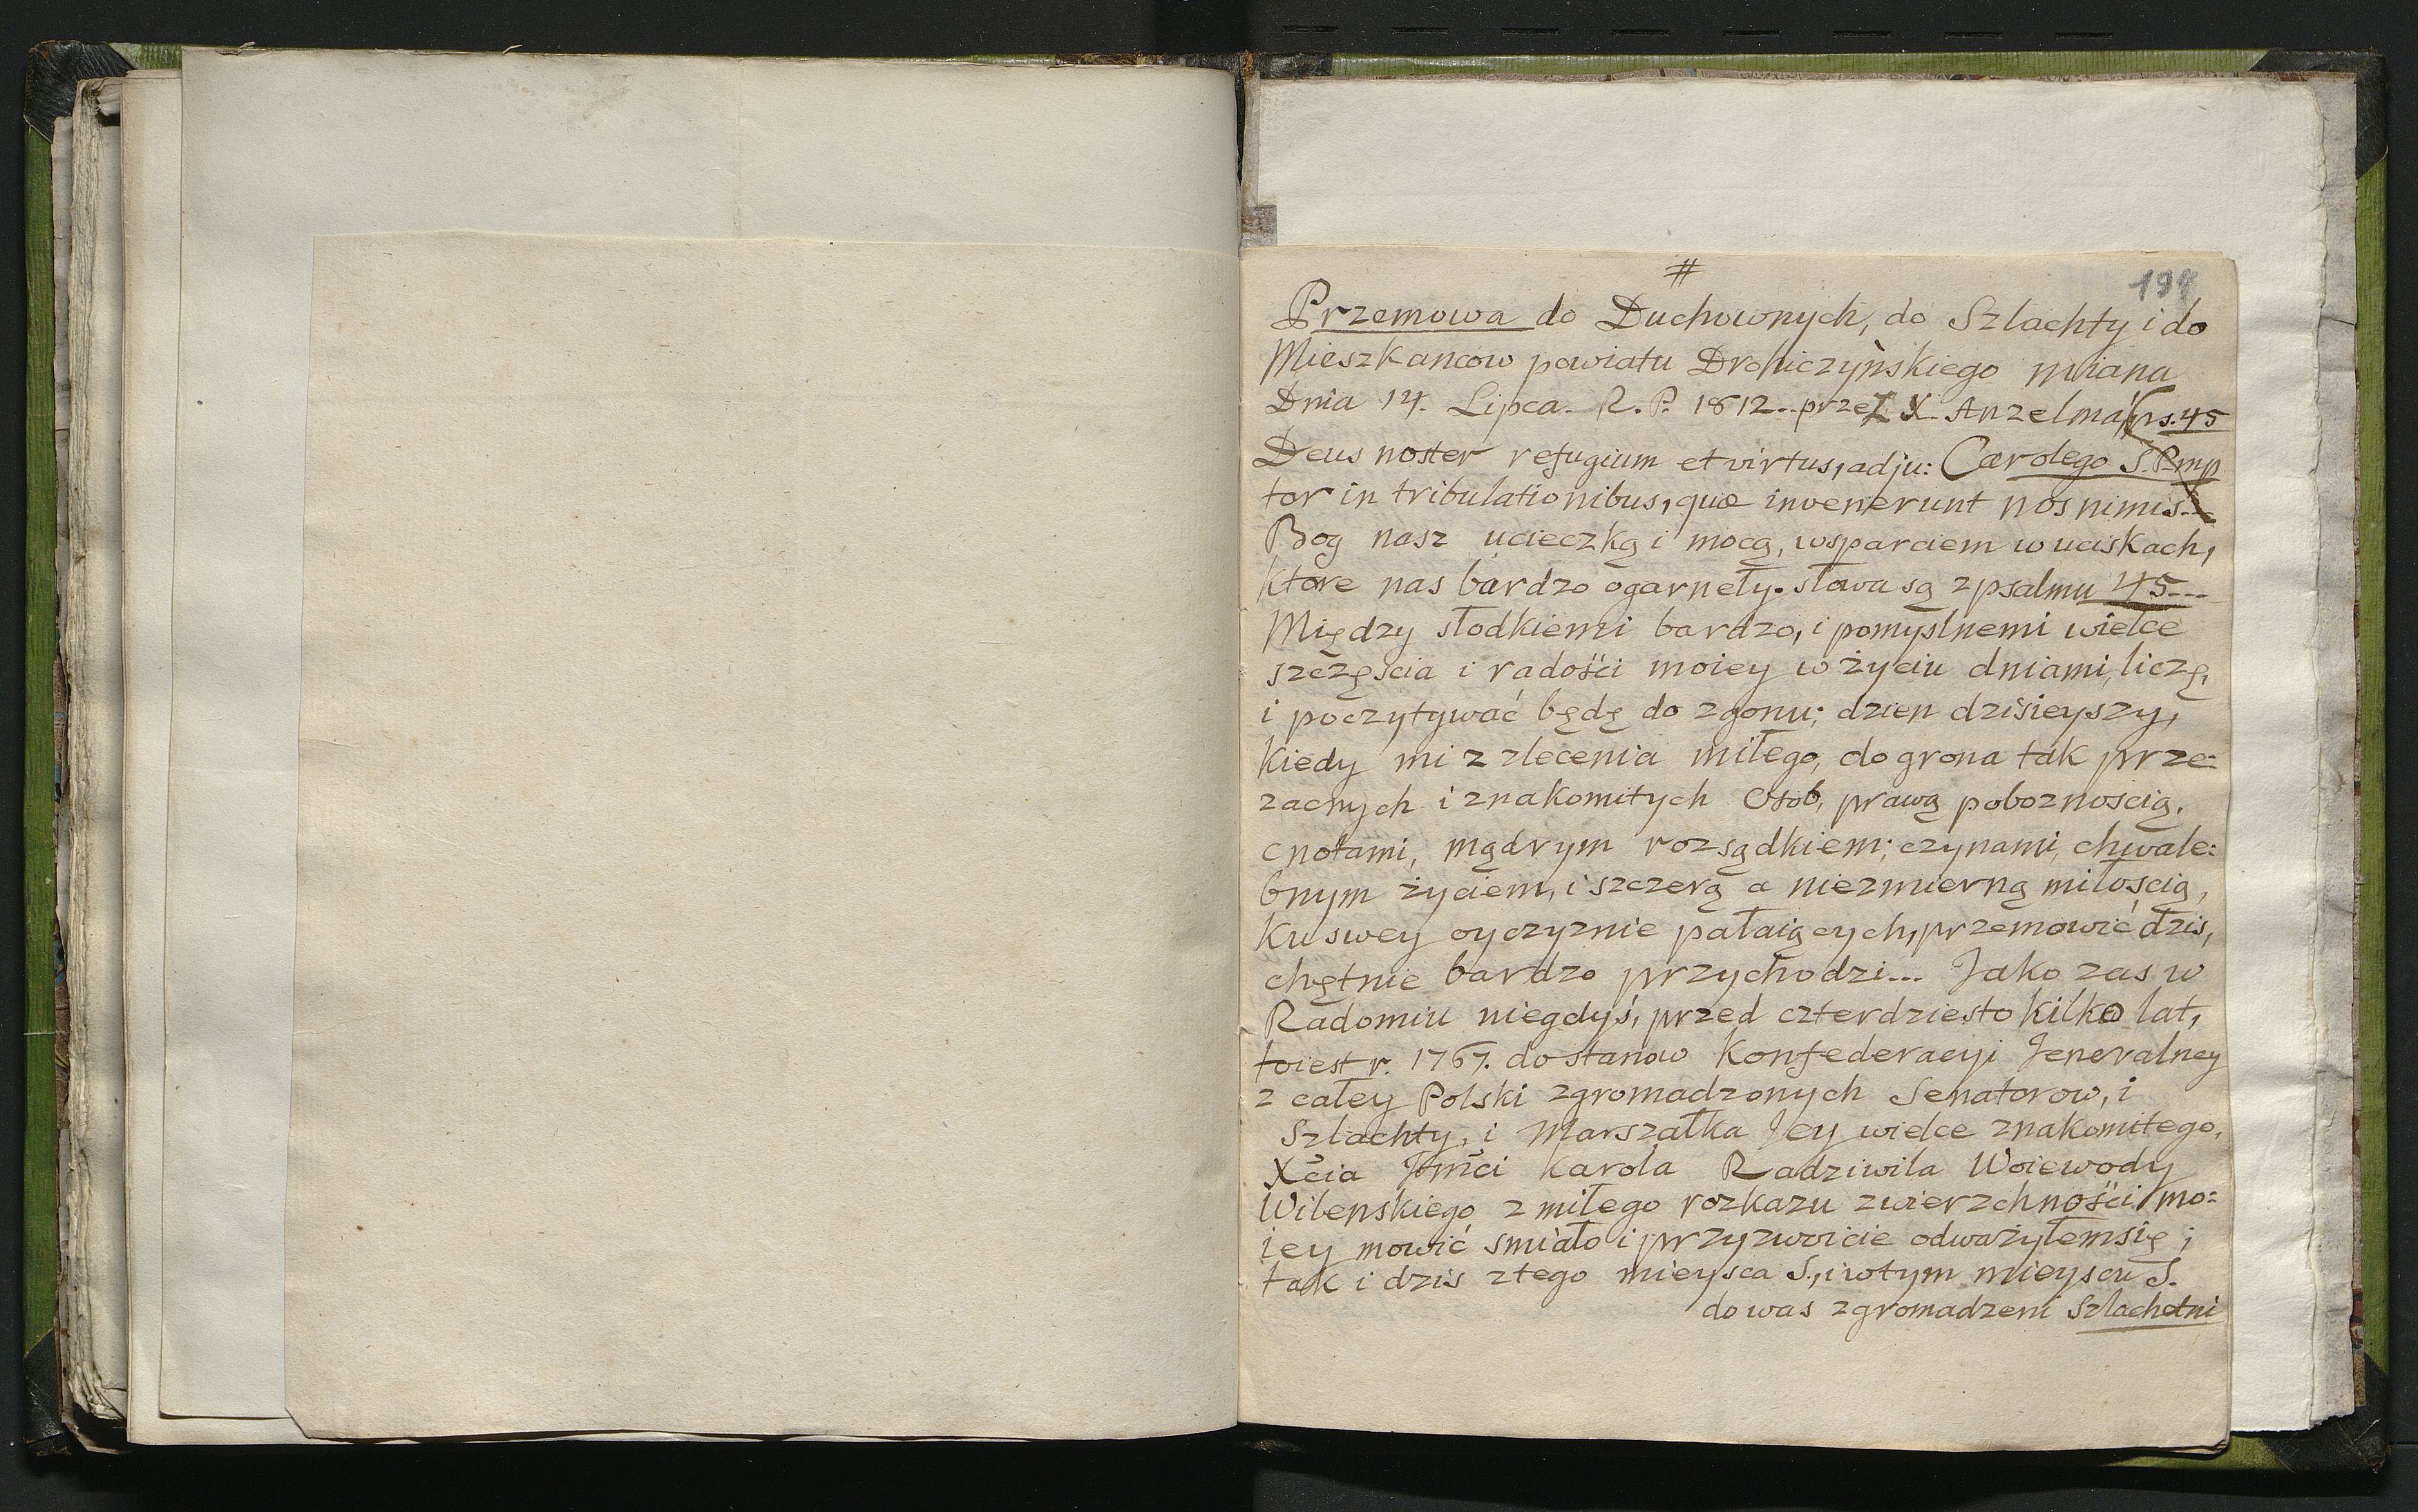 #
194
Przemowa do Duchownych, do Szlachty i do
Mieszkancow powiatu Drohiczyńskiego miana
Dnia 14. Lipca. R. P. 1812.. przez X. Anzelma ps. 45
Deus noster refugium et virtus, adju: Carolego S. P. mp
tor in tribulationibus, quæ invenerunt nos nimis...
Bog nasz ucieczką i mocą, wsparciem w uciskach,
ktore nas bardzo ogarnęły. słowa są z psalmu 45---
Między słodkiemi bardzo, i pomyslnemi wielce
szczęscia i radości moiey w życiu dniami, liczę,
i poczytywać będę do zgonu; dzien dzisieyszy,
kiedy mi z zlecenia miłego, do grona tak prze:
zacnych i znakomitych Osób, prawą poboznoscią,
cnotami, mądrym rozsądkiem; czynami, chwale:
bnym życiem, i szczerą a niezmierną miłoscią,
ku swey oyczyznie pałaiących, przemowić dzis,
chętnie bardzo przychodzi... Jako zas w
Radomiu niegdyś, przed czterdziesto kilko lat,
toiest r. 1767. do stanow Konfederacyi Jeneralney
z całey Polski zgromadzonych Senatorow, i
Szlachty, i Marszałka Jey wielce znakomitego,
Xcia Jmći Karola Radziwiła Woiewody
Wilenskiego z miłego rozkazu zwierzchności mo:
iey mowić smiało i przyzwoicie odważyłem się;
tak i dzis z tego mieysca S., i w tym mieyscu S.
do was zgromadzeni Szlachetni